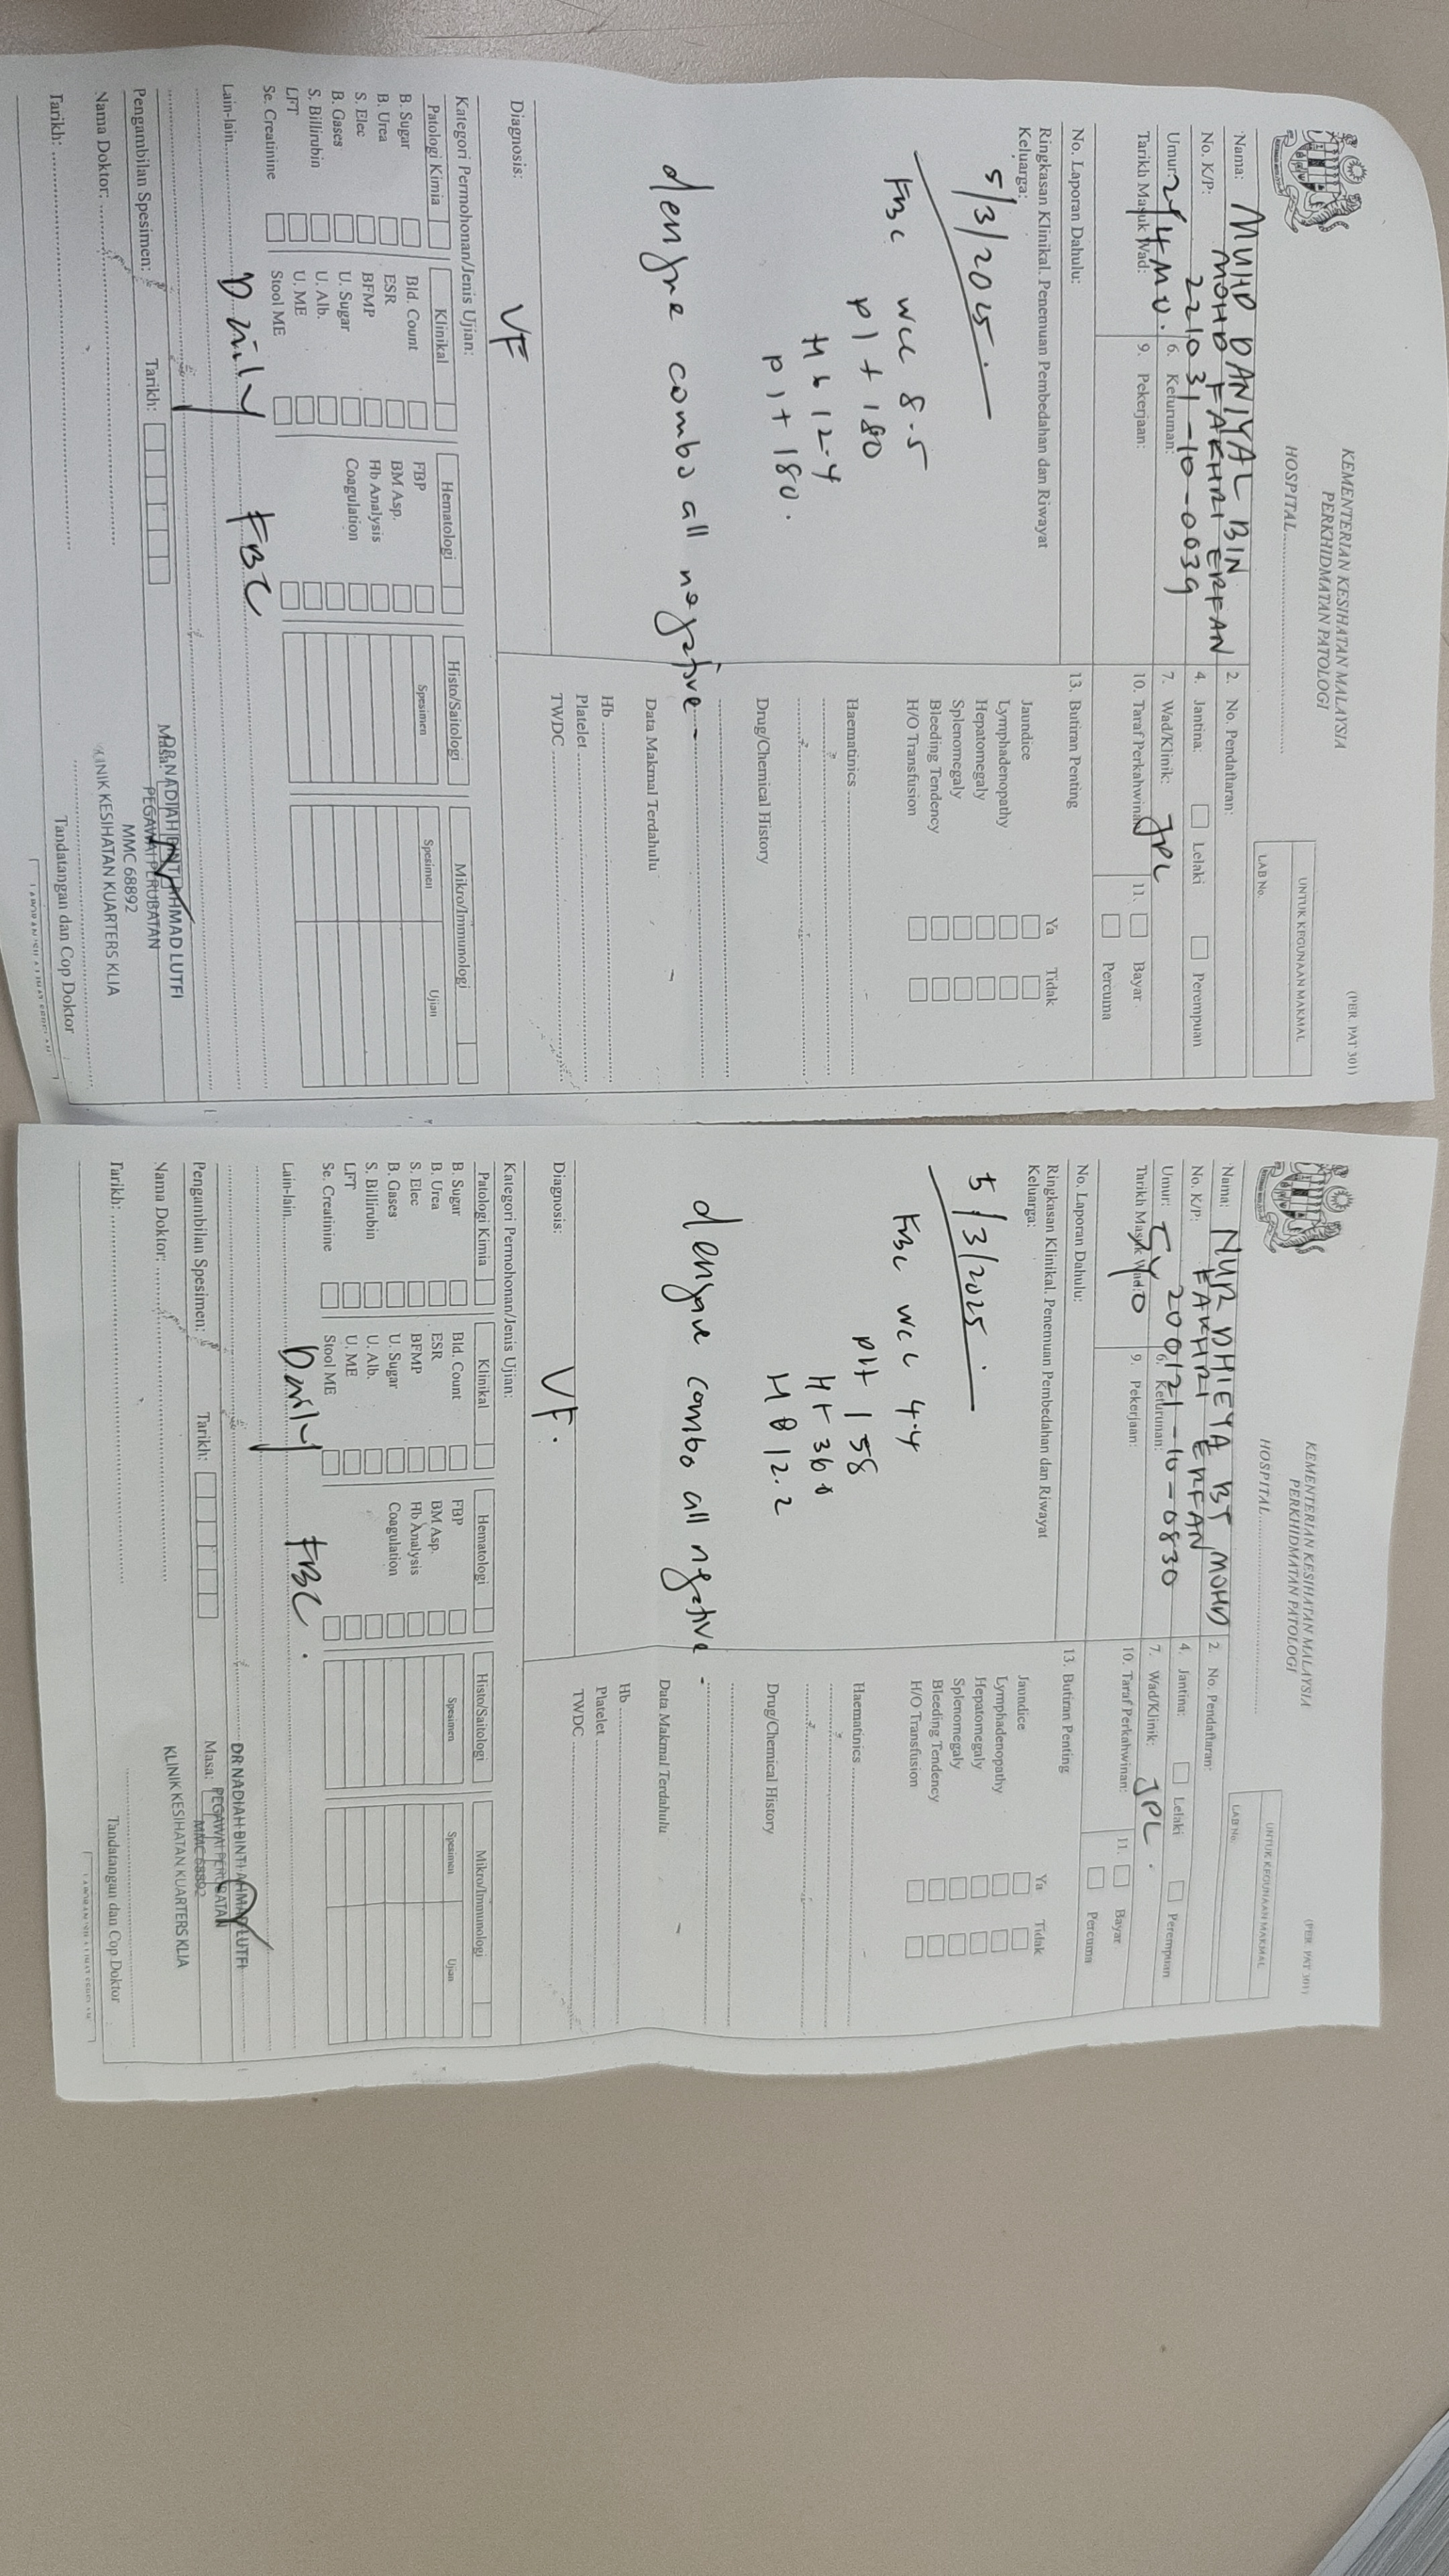 (PER. PAT 301)
KEMENTERIAN KESIHATAN MALAYSIA
PERKHIDMATAN PATOLOGI
HOSPITAL
UNTUK KEGUNAAN MAKMAL
LAB No.
Nama: MUHD DANIYAL BIN
MOHD FAKHRI ERFAN
2. No. Pendaftaran:
No. K/P: 221031-10-0039
4. Jantina: Lelaki Perempuan
Umur: 2Y4MO. 6. Keturunan:
7. Wad/Klinik: JPL
Tarikh Masuk Wad: 9. Pekerjaan:
10. Taraf Perkahwinan:
11. Bayar
Percuma
No. Laporan Dahulu:
13. Butiran Penting
Ringkasan Klinikal. Penemuan Pembedahan dan Riwayat
Keluarga:
Ya Tidak
Jaundice
Lymphadenopathy
Hepatomegaly
Splenomegaly
Bleeding Tendency
H/O Transfusion
5/3/2025
FBC WCC 8.5
Plt 180
Hb 12.4
Plt 180.
Haematinics
Drug/Chemical History
dengue combo all negative
Data Makmal Terdahulu
Hb
Platelet
TWDC
Diagnosis: VF
Kategori Permohonan/Jenis Ujian:
Patologi Kimia Klinikal Hematologi Histo/Saitologi Mikro/Immunologi
B. Sugar Bld. Count FBP Spesimen Spesimen Ujian
B. Urea ESR BM Asp.
S. Elec BFMP Hb Analysis
B. Gases U. Sugar Coagulation
S. Billirubin U. Alb.
LFT U. ME
Se. Creatinine Stool ME
Lain-lain Daily FBC
Pengambilan Spesimen: Tarikh: Masa:
DR NADIAH BINTI AHMAD LUTFI
PEGAWAI PERUBATAN
MMC 68892
KLINIK KESIHATAN KUARTERS KLIA
Nama Doktor:
Tarikh: Tandatangan dan Cop Doktor
(PER. PAT 301)
KEMENTERIAN KESIHATAN MALAYSIA
PERKHIDMATAN PATOLOGI
HOSPITAL
UNTUK KEGUNAAN MAKMAL
LAB No.
Nama: NUR DHIEYA BT MOHD
FAKHRI ERFAN
2. No. Pendaftaran:
No. K/P: 200121-10-0830
4. Jantina: Lelaki Perempuan
Umur: 5Y 6. Keturunan:
7. Wad/Klinik: JPL.
Tarikh Masuk Wad: 9. Pekerjaan:
10. Taraf Perkahwinan:
11. Bayar
Percuma
No. Laporan Dahulu:
13. Butiran Penting
Ringkasan Klinikal. Penemuan Pembedahan dan Riwayat
Keluarga:
Ya Tidak
Jaundice
Lymphadenopathy
Hepatomegaly
Splenomegaly
Bleeding Tendency
H/O Transfusion
5/3/2025
FBC WCC 4.4
Plt 158
HB 12.2
Haematinics
Drug/Chemical History
dengue combo all negative
Data Makmal Terdahulu
Hb
Platelet
TWDC
Diagnosis: VF.
Kategori Permohonan/Jenis Ujian:
Patologi Kimia Klinikal Hematologi Histo/Saitologi Mikro/Immunologi
B. Sugar Bld. Count FBP Spesimen Spesimen Ujian
B. Urea ESR BM Asp.
S. Elec BFMP Hb Analysis
B. Gases U. Sugar Coagulation
S. Billirubin U. Alb.
LFT U. ME
Se. Creatinine Stool ME
Lain-lain Daily FBC.
Pengambilan Spesimen: Tarikh: Masa:
DR NADIAH BINTI AHMAD LUTFI
PEGAWAI PERUBATAN
MMC 68892
KLINIK KESIHATAN KUARTERS KLIA
Nama Doktor:
Tarikh: Tandatangan dan Cop Doktor